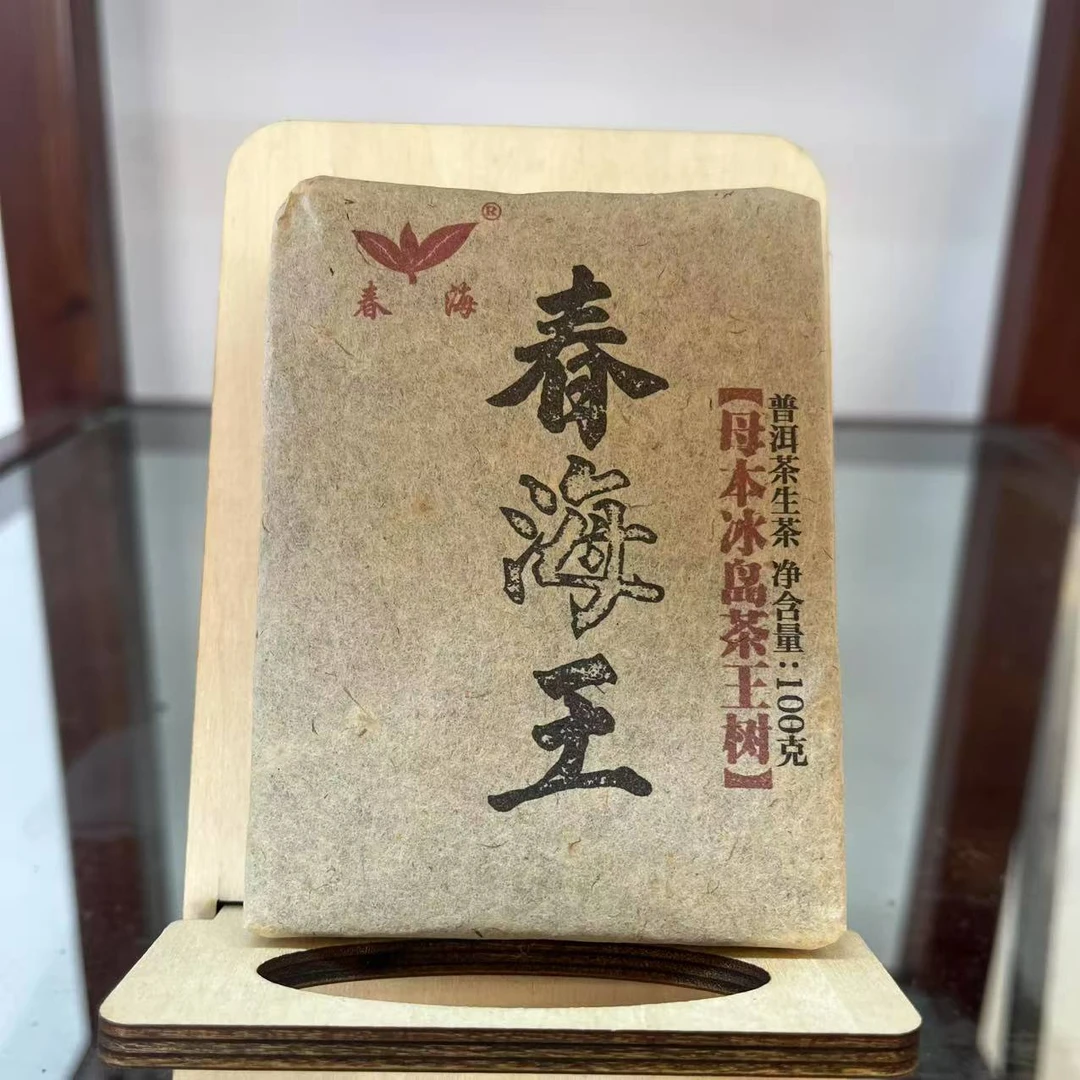 ®
春 海
春海王
【母本冰岛茶王树】
普洱茶生茶 净含量:100克